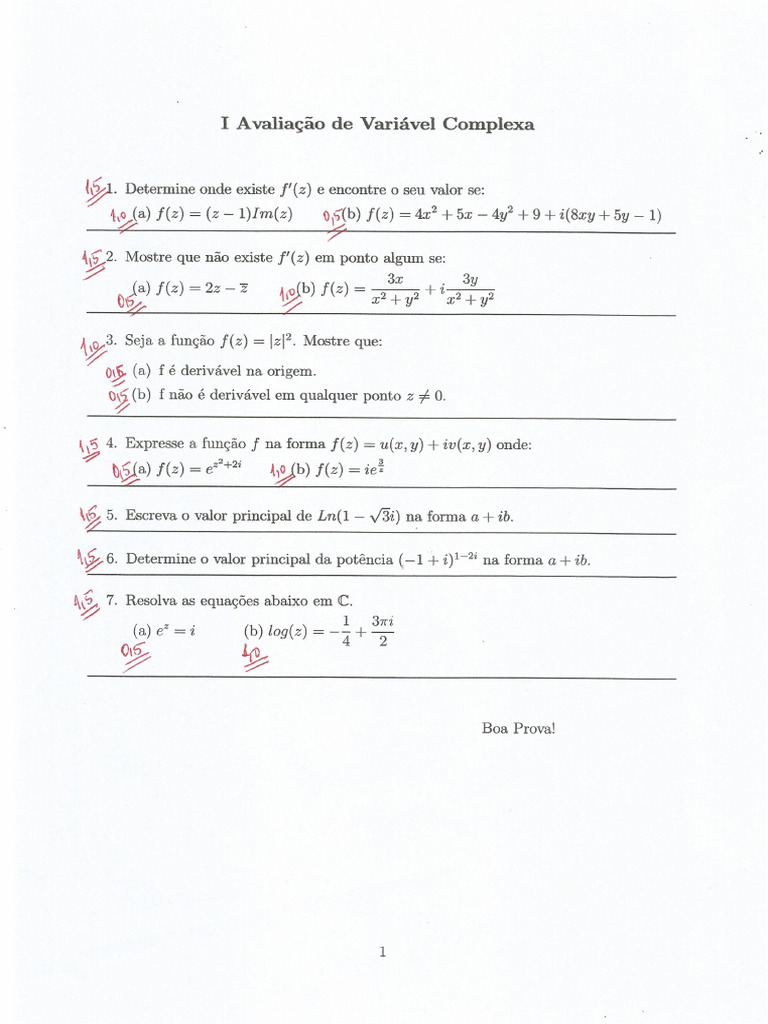 I Avaliação de Variável Complexa
1,5 1. Determine onde existe f′(z) e encontre o seu valor se:
1,0 (a) f(z) = (z − 1)Im(z) 0,5 (b) f(z) = 4x² + 5x − 4y² + 9 + i(8xy + 5y − 1)
1,5 2. Mostre que não existe f′(z) em ponto algum se:
0,5 (a) f(z) = 2z − z̅ 1,0 (b) f(z) = 3x/(x² + y²) + i 3y/(x² + y²)
1,0 3. Seja a função f(z) = |z|². Mostre que:
0,5 (a) f é derivável na origem.
0,5 (b) f não é derivável em qualquer ponto z ≠ 0.
1,5 4. Expresse a função f na forma f(z) = u(x, y) + iv(x, y) onde:
0,5 (a) f(z) = e^(z²+2i) 1,0 (b) f(z) = ie^(3/z)
1,5 5. Escreva o valor principal de Ln(1 − √3i) na forma a + ib.
1,5 6. Determine o valor principal da potência (−1 + i)^(1−2i) na forma a + ib.
1,5 7. Resolva as equações abaixo em ℂ.
(a) e^z = i (b) log(z) = −1/4 + 3πi/2
0,5 1,0
Boa Prova!
1